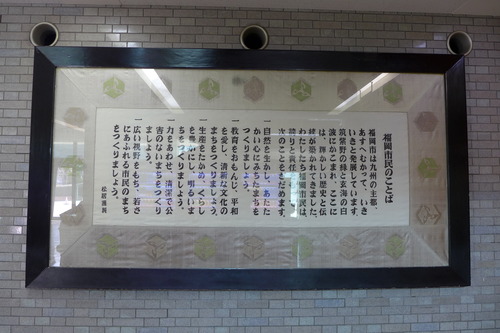 福岡市民のことば
福岡市は九州の主都、
あすへむかって、いき
いきと発展しています。
筑紫野の緑と玄海の白
波にかこまれ、ここに
は、輝かしい歴史と伝
統が築かれてきました。
わたしたち福岡市民は、
誇りと責任をもって、
次のことをさだめます。
一 自然を生かし、あたた
かい心にみちたまちを
つくりましょう。
一 教育をおもんじ、平和
を愛し、清新な文化の
まちをつくりましょう。
一 生産をたかめ、くらし
を豊かにし、明るいま
ちをつくりましょう。
一 力をあわせ、清潔で公
害のないまちをつくり
ましょう。
一 広い視野をもち、若さ
にあふれる市民のまち
をつくりましょう。